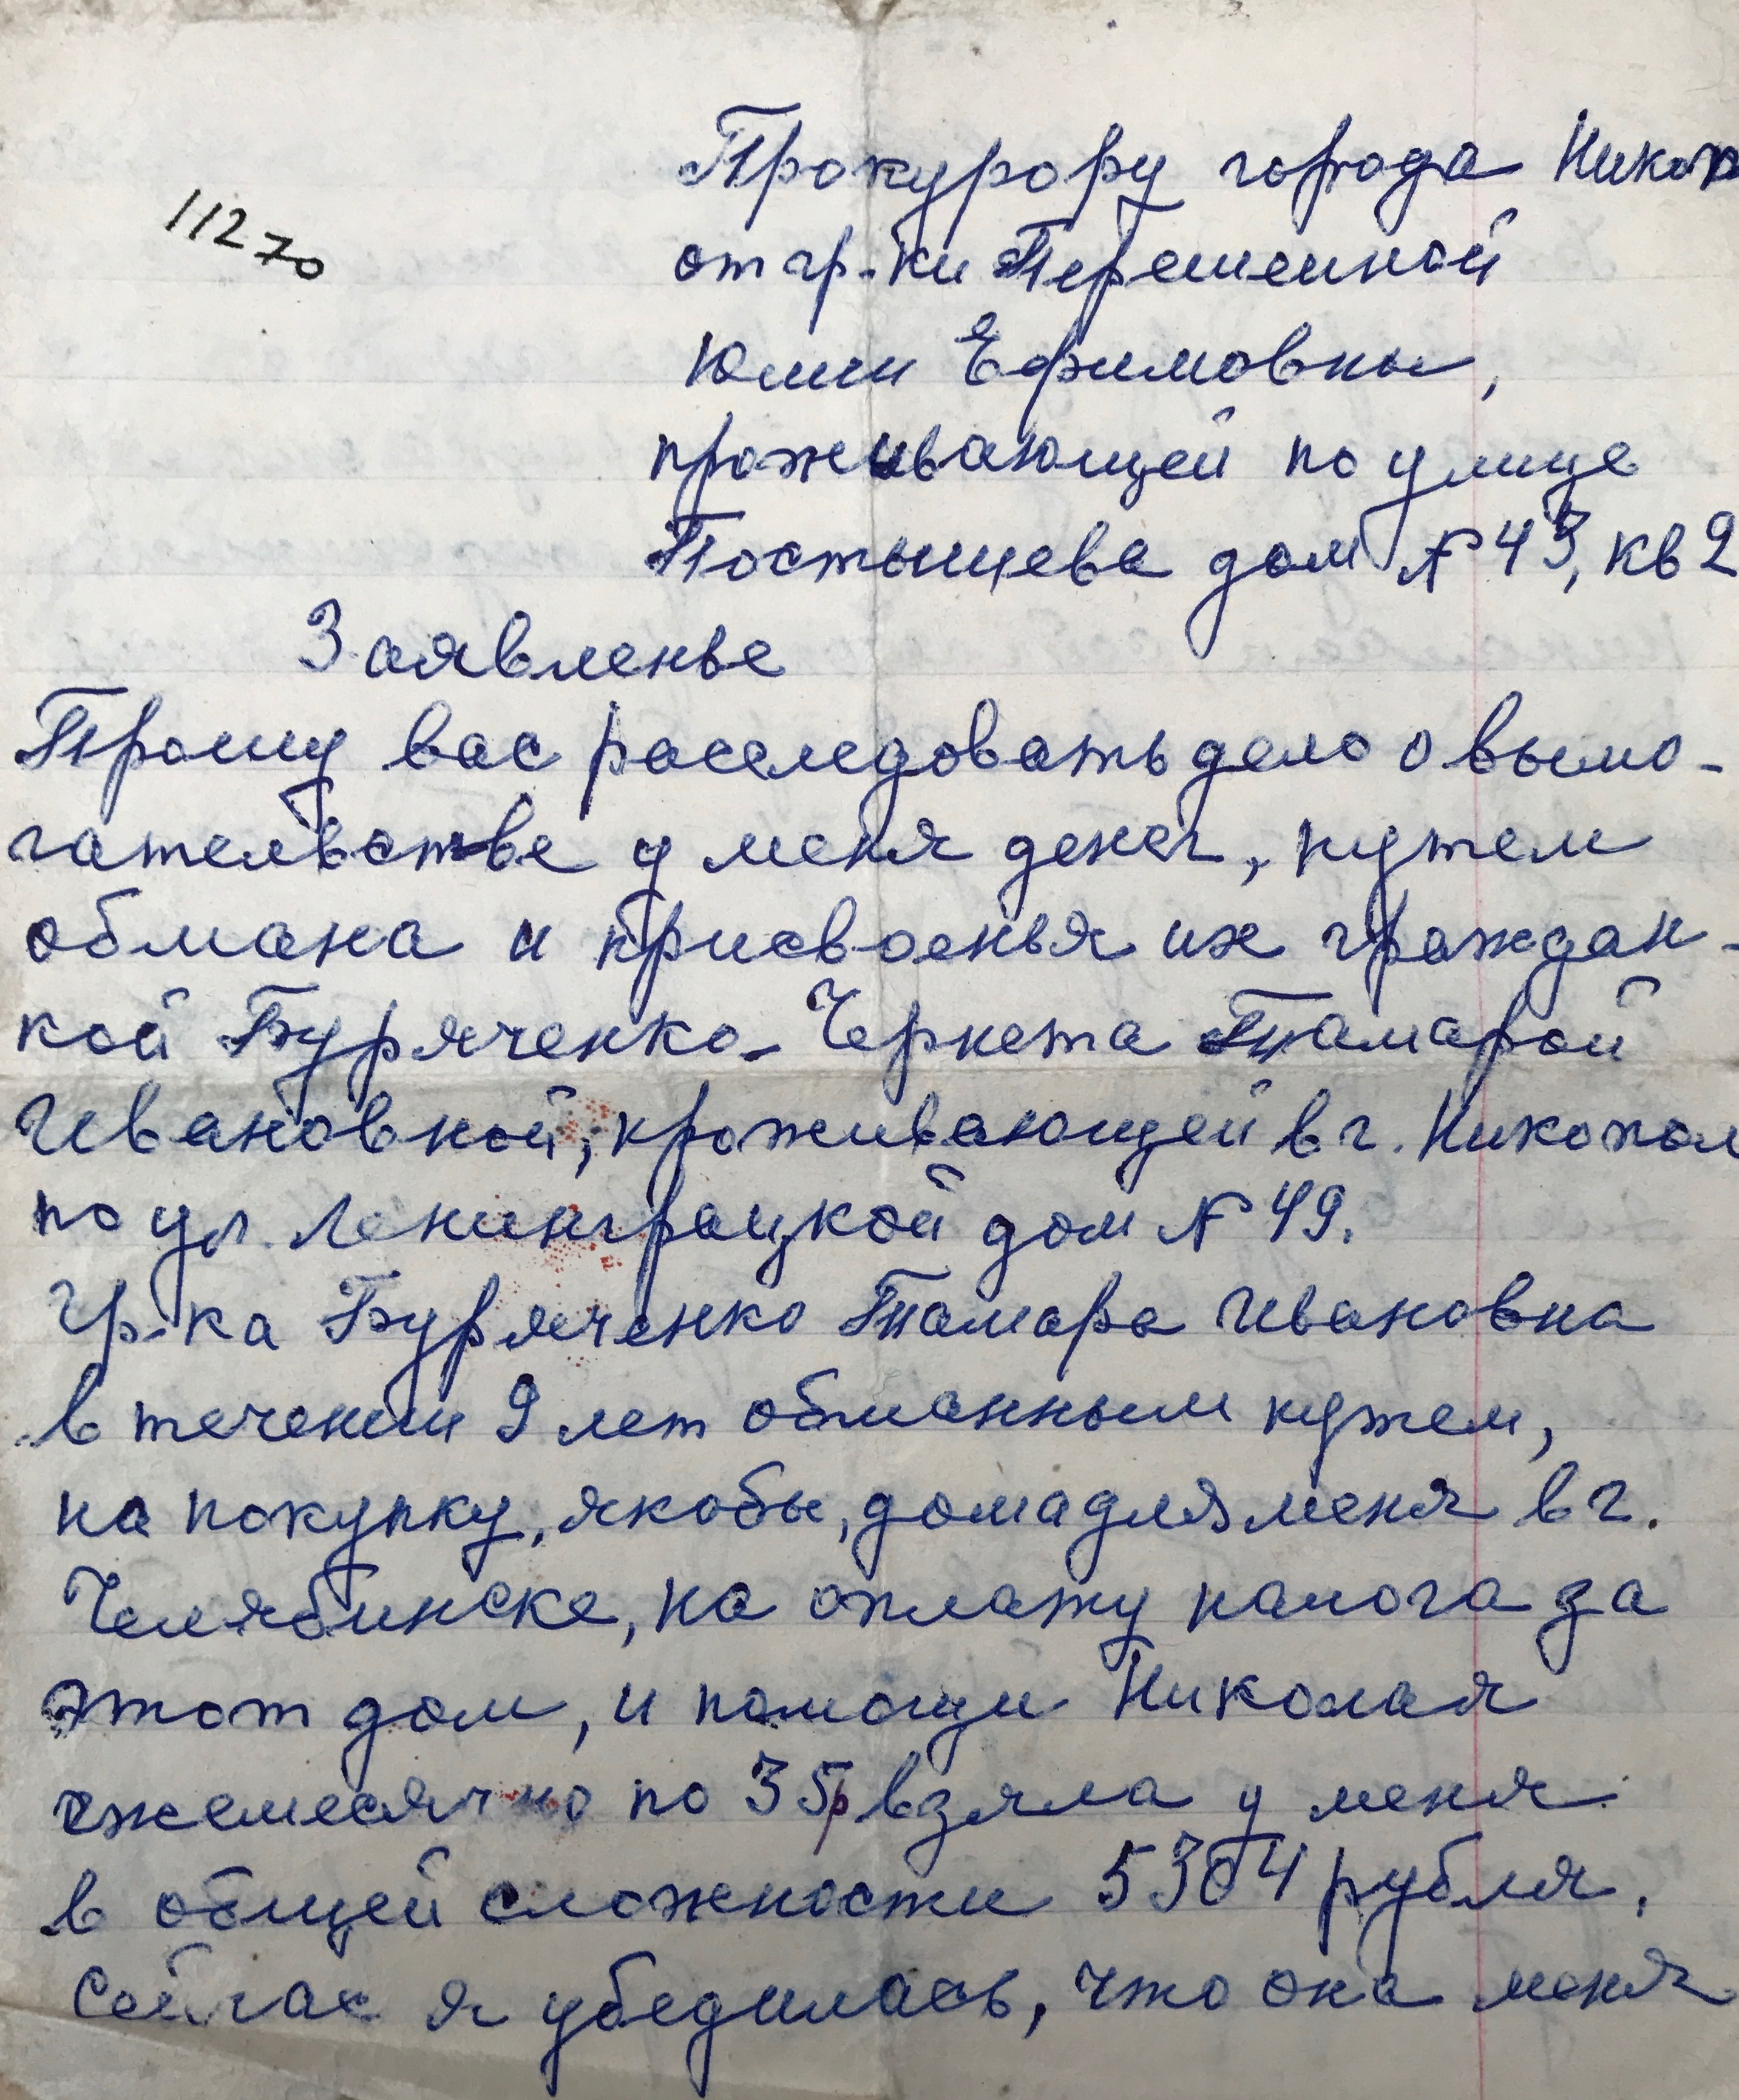 Прокурору города Никоп
11270
от гр-ки Терешенкой
Юлии Ефимовны,
проживающей по улице
Постышева дом № 43, кв 2
Заявленье
Прошу вас расследовать дело о вымо-
гательстве у меня денег, путем
обмана и присвоенья их граждан-
кой Буряченко-Чернета Тамарой
Ивановной, проживающей в г. Никопол
по ул. Ленинграцкой дом № 49.
Гр-ка Буряченко Тамара Ивановна
в течении 9 лет обманным путем,
на покупку, якобы, дома для меня в г.
Челябинске, на оплату налога за
этот дом, и помощи Николая
ежемесячно по 35р взяла у меня
в общей сложности 5304 рубля.
Сейчас я убедилась, что она меня